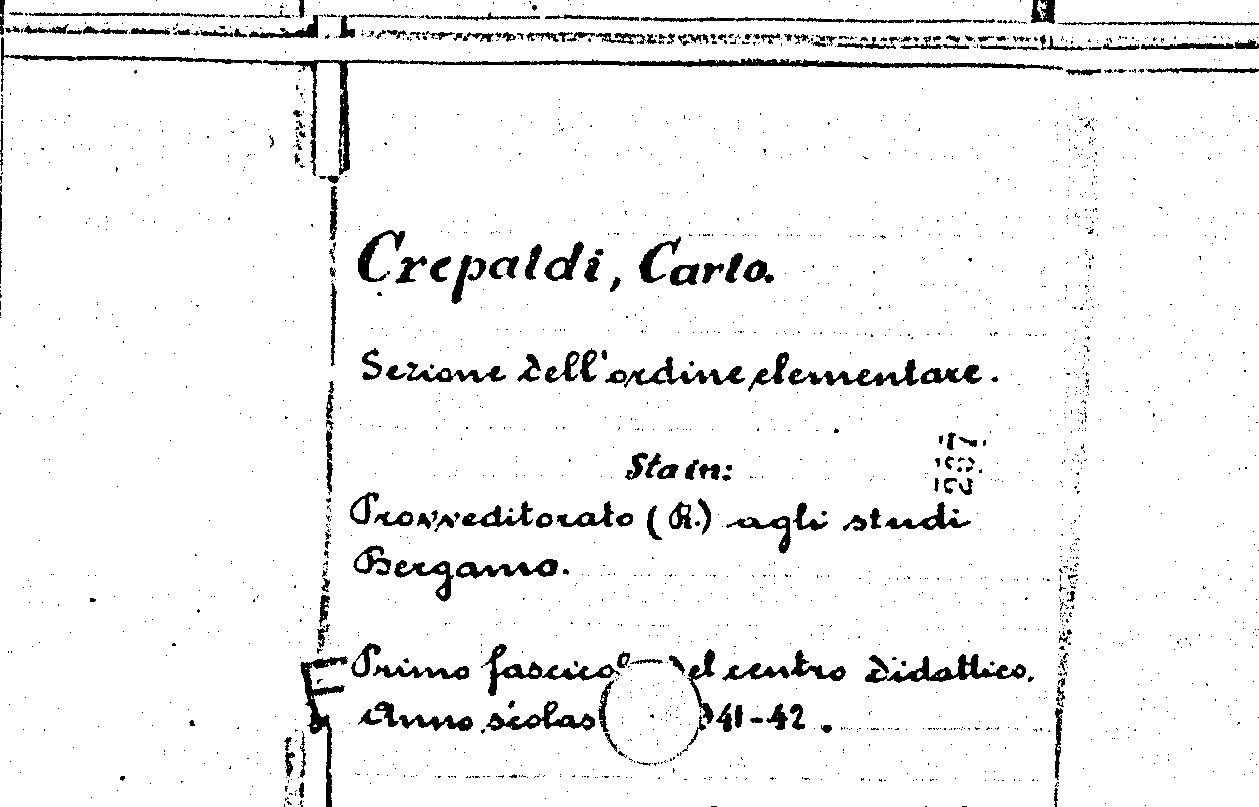 Crepaldi, Carlo.
Sezione dell'ordine elementare.
Sta in:
Provveditorato (R.) agli studi
Bergamo.
Primo fascicol del centro didattico.
Anno scolas 41-42.